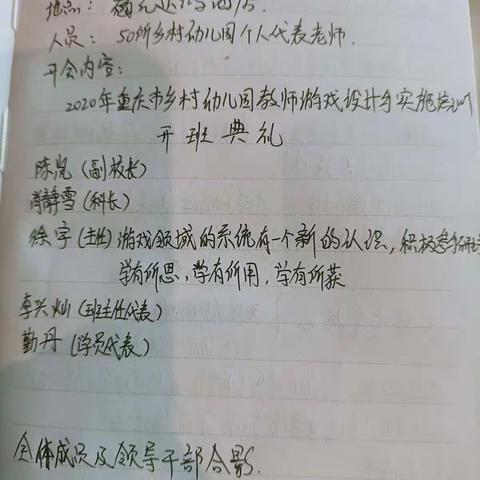 地点:
人员: 50所乡村幼儿园个人代表老师.
开会内容:
2020年重庆市乡村幼儿园教师游戏设计与实施培训
开班典礼
陈岚(副校长)
肖静雪(科长)
徐宇(主任)游戏领域的系统有一个新的认识,积极参与研
学有所思,学有所用,学有所获
李兴灿(班主任代表)
勤丹(学员代表)
全体成员及领导干部合影.